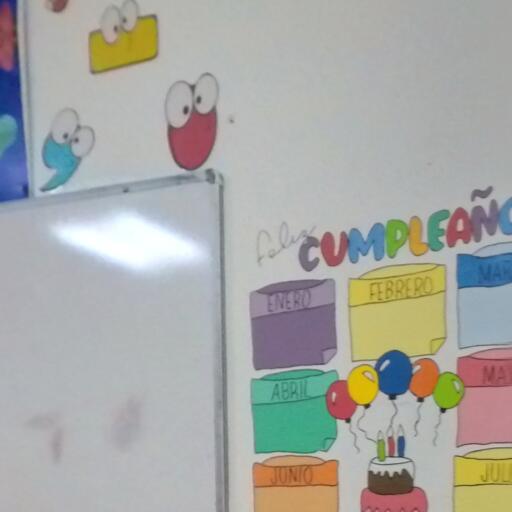 feliz
CUMPLEAÑO
ENERO FEBRERO MAR
ABRIL MAY
JUNIO JUL